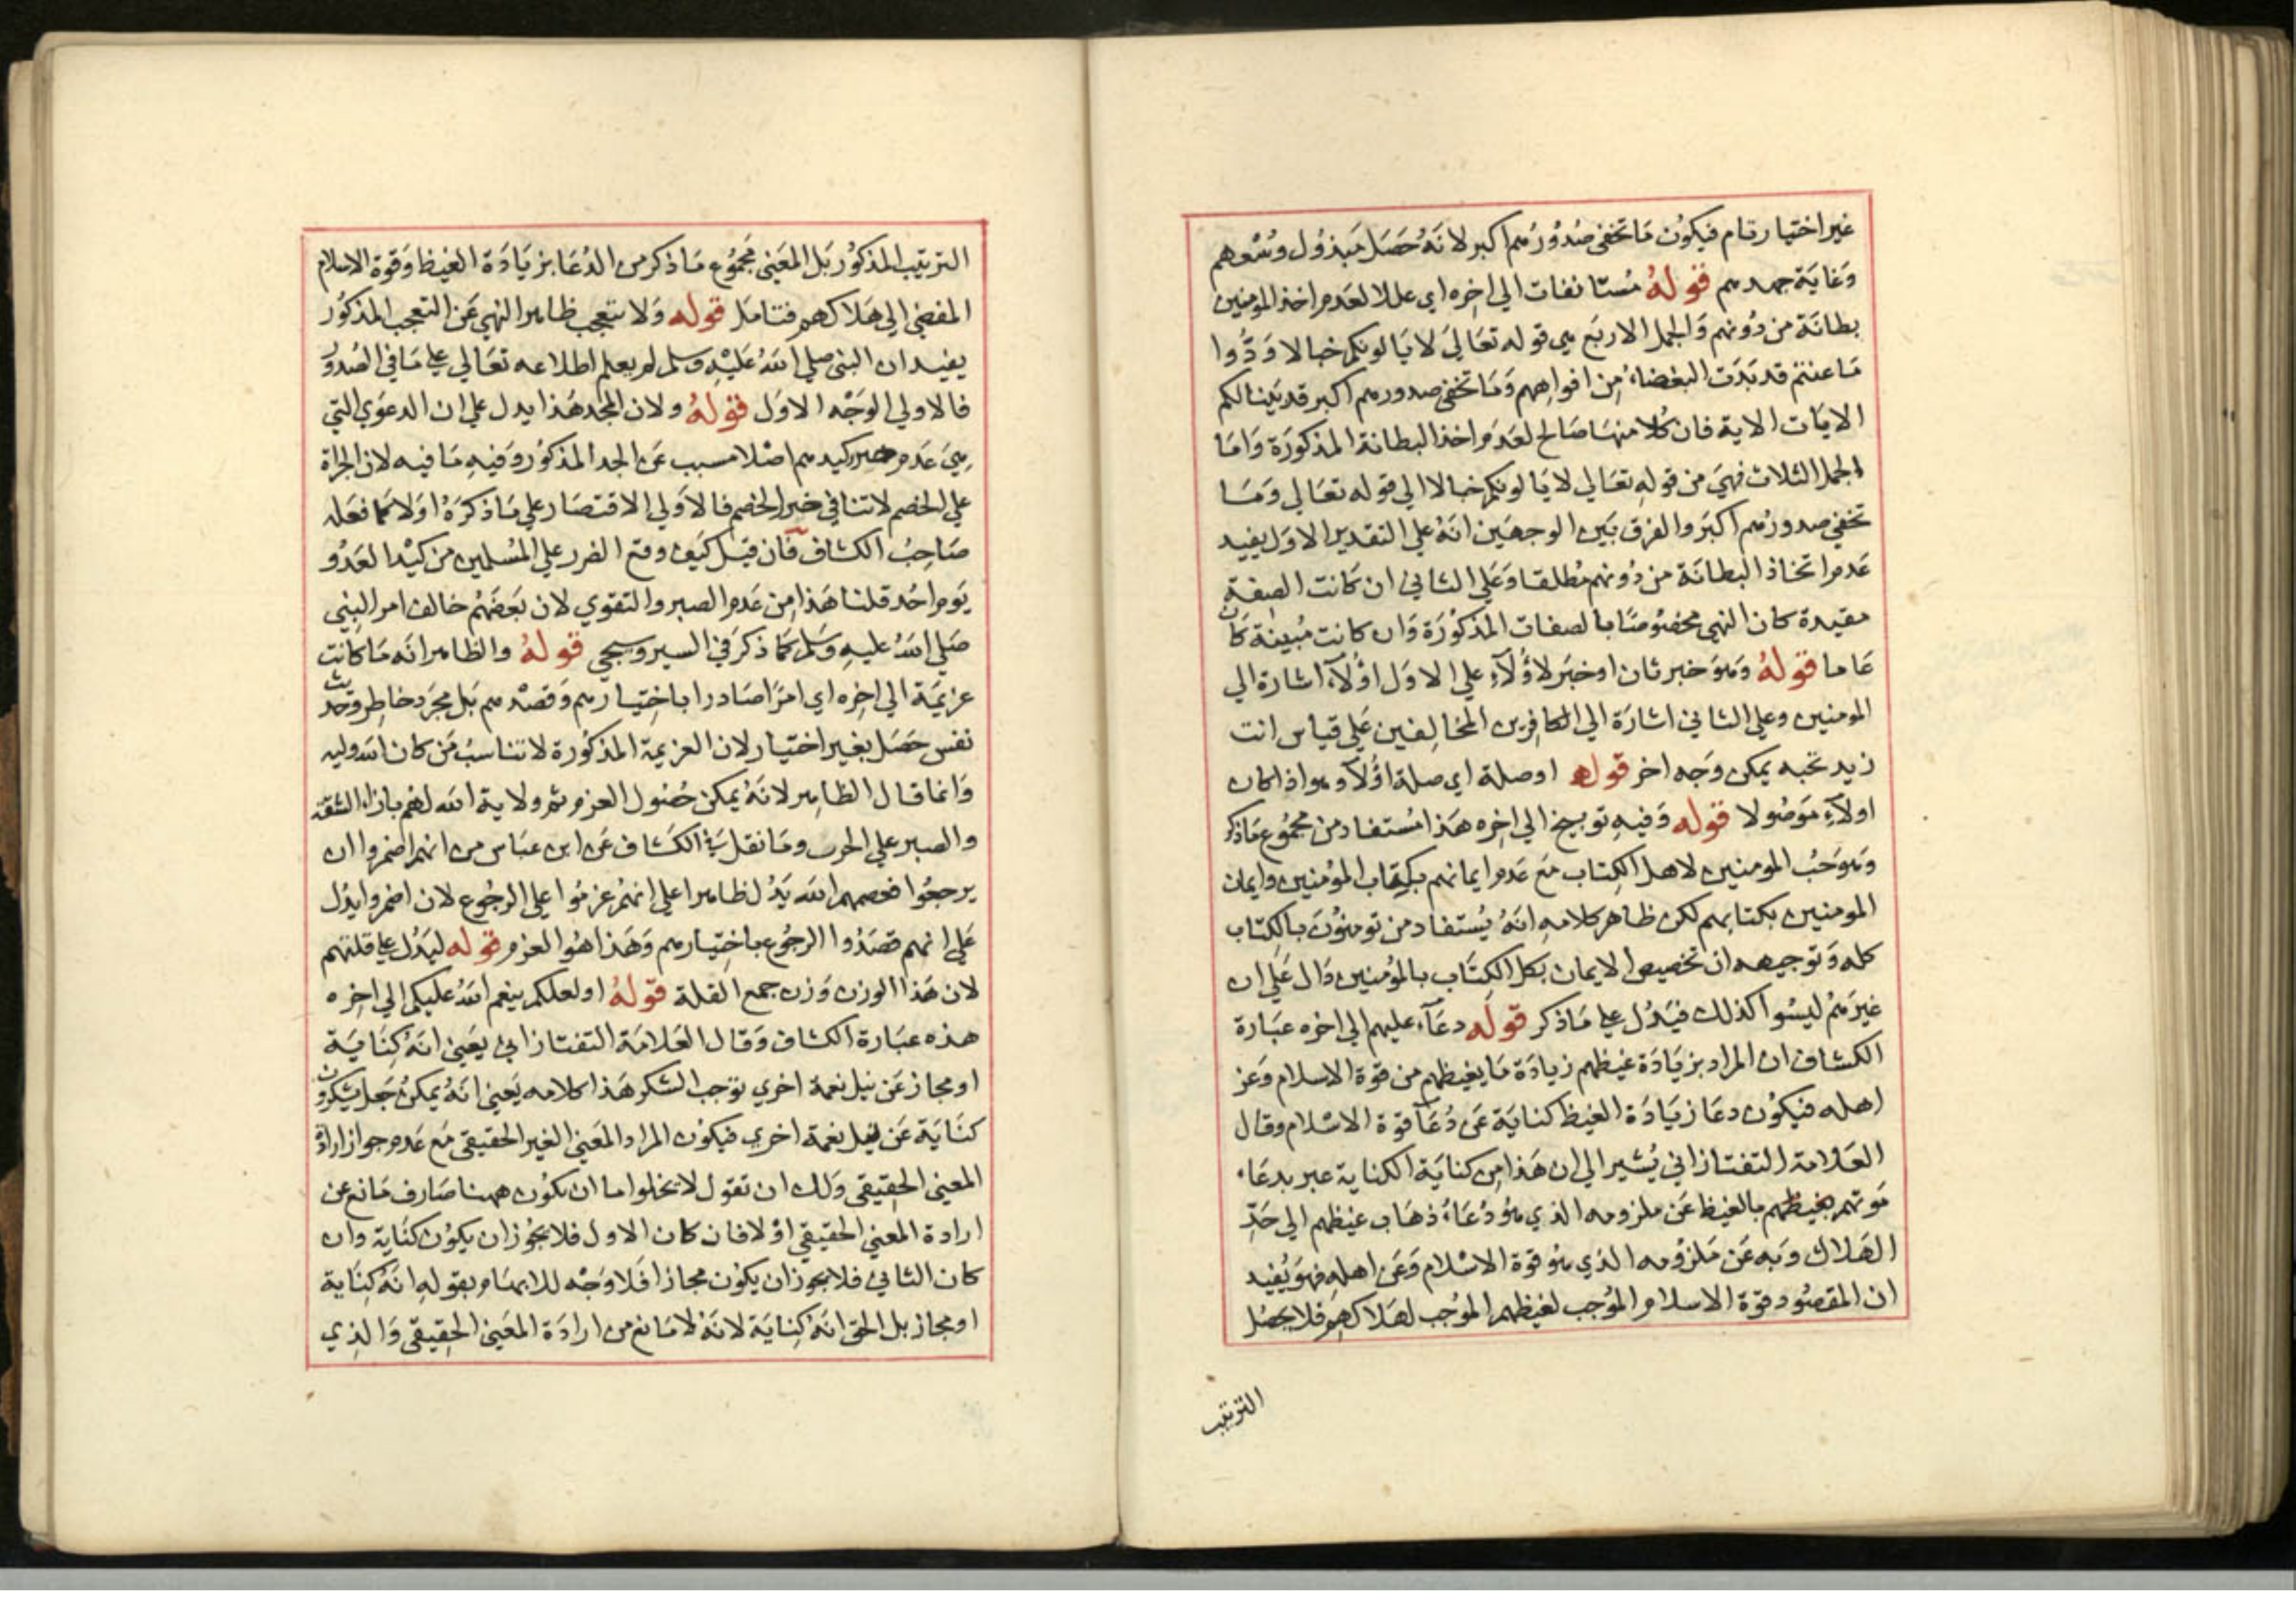 غير اختيار تام فيكون ما تخفي صدورهم اكبر لانه حصل مبذول وسعهم
وغاية جهدهم قوله مستانفات الي اخره اي عللا لعدم اخذ المومنين
بطانة من دونهم والجمل الاربع هي قوله تعالي لا يالونكم خبالا ودوا
ما عنتم قد بدت البغضاء من افواههم وما تخفي صدورهم اكبر قد بينا لكم
الايات الاية فان كلا منها صالح لعدم اخذ البطانة المذكورة واما
الجمل الثلاث فهي من قوله تعالي لا يالونكم خبالا الي قوله تعالي وما
تخفي صدورهم اكبر والفرق بين الوجهين انه علي التقدير الاول يفيد
عدم اتخاذ البطانة من دونهم مطلقا وعلي الثاني ان كانت الصفة
مقيدة كان النهي مخصوصا بالصفات المذكورة وان كانت مبينة كان
عاما قوله وهو خبر ثان او خبر لاؤلآء علي الاول اؤلآء اشارة الي
المومنين وعلي الثاني اشارة الي الكافرين المخالفين علي قياس انت
زيد تحبه يمكن وجه اخر قوله اوصلة اي صلة اؤلآء وهو اذا كان
اولآء موصولا قوله وفيه توبيخ الي اخره هذا مستفاد من مجموع ما ذكر
وهو حب المومنين لاهل الكتاب مع عدم ايمانهم بكتاب المؤمنين وايمان
المومنين بكتابهم لكن ظاهر كلامه انه يستفاد من تومنون بالكتاب
كله وتوجيهه ان تخصيص الايمان بكل الكتاب بالمؤمنين دال علي ان
غيرهم ليسوا كذلك فيدل علي ما ذكر قوله دعآء عليهم الي اخره عبارة
الكشاف ان المراد بزيادة غيظهم زيادة ما يغيظهم من قوة الاسلام وعز
اهله فيكون دعا زيادة الغيظ كناية عن دعآ قوة الاسلام وقال
العلامة التفتازاني يشير الي ان هذا من كناية الكناية عبر بدعاء
موتهم بغيظهم بالغيظ عن ملزومه الذي هو دعاء ذهاب غيظهم الي حد
الهلاك وبه عن ملزومه الذي هو قوة الاسلام وعن اهله فهو يفيد
ان المقصود قوة الاسلام الموجب لغيظهم الموجب لهلاكهم فلا يحصل
الترتيب
الترتيب المذكور بل المعني مجموع ما ذكر من الدعا بزيادة الغيظ وقوة الاسلام
المفضي الي هلاكهم فتامل قوله ولا تتعجب ظاهر النهي عن التعجب المذكور
يفيد ان النبي صلي الله عليه وسلم لم يعلم اطلاعه تعالي علي ما في الصدور
فالاولي الوجه الاول قوله ولان المجد هذا يدل علي ان الدعوي التي
هي عدم ضرر كيدهم اصلا مسبب عن الجد المذكور وفيه ما فيه لان الجراة
علي الخصم لا تنافي خبر الخصم فالاولي الاقتصار علي ما ذكره اولا كما فعله
صاحب الكشاف فان قيل كيف وقع الضرر علي المسلمين من كيد العدو
يوم احد قلنا هذا من عدم الصبر والتقوي لان بعضهم خالف امر النبي
صلي الله عليه وسلم كما ذكر في السير وسيجي قوله والظاهر انه ما كانت
عزيمة الي اخره اي امرا صادرا باختيارهم وقصدهم بل مجرد خاطر وحديث
نفس حصل بغير اختيار لان العزيمة المذكورة لا تناسب من كان الله وليه
وانما قال الظاهر لانه يمكن حصول العزم ثم ولاية الله لهم بازاء الثقة
والصبر علي الحرب وما نقل في الكشاف عن ابن عباس من انهم اضمروا ان
يرجعوا فعصمهم الله يدل ظاهرا علي انهم عزموا علي الرجوع لان اضمروا يدل
علي انهم قصدوا الرجوع باختيارهم وهذا هو العزم قوله ليدل علي قلتهم
لان هذا الوزن وزن جمع القلة قوله او لعلكم ينعم الله عليكم الي اخره
هذه عبارة الكشاف وقال العلامة التفتازاني يعني انه كناية
او مجاز عن نيل نعمة اخري توجب الشكر هذا كلامه يعني انه يمكن جعل يشكرون
كناية عن نيل نعمة اخري فيكون المراد المعني الغير الحقيقي مع عدم جواز ارادة
المعني الحقيقي ولك ان تقول لا يخلوا ما ان يكون ههنا صارف مانع عن
ارادة المعني الحقيقي او لا فان كان الاول فلا يجوز ان يكون كناية وان
كان الثاني فلا يجوز ان يكون مجازا فلا وجه للابهام بقوله انه كناية
او مجاز بل الحق انه كناية لانه لا مانع من ارادة المعني الحقيقي والذي